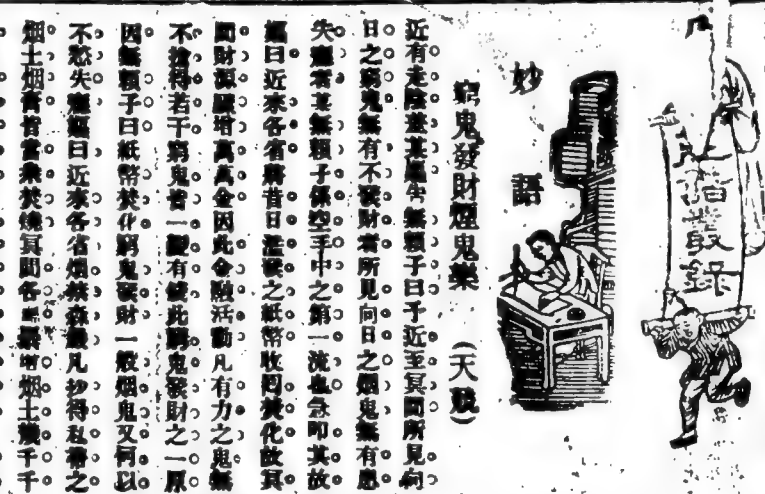 諧叢錄
妙語
窮鬼發財煙鬼樂 （天
近有走陰差某告無賴子曰予近至冥間所見向
日之窮鬼無有不發財者所見向日之煙鬼無有愁
失癮者某無賴子係空手中之第一流也急叩其故
曰近來各省將昔日濫發之紙幣收回焚化故冥
間財源驟增萬萬金因此金融活動凡有力之鬼無
不搶得若干窮鬼皆一變有錢此窮鬼發財之一原
因無賴子曰紙幣焚化窮鬼發財一般烟鬼又何以
不愁失癮曰近來各省烟禁森嚴凡抄得私帶之
烟土烟膏皆當衆焚燒冥間各驟增烟土幾千千